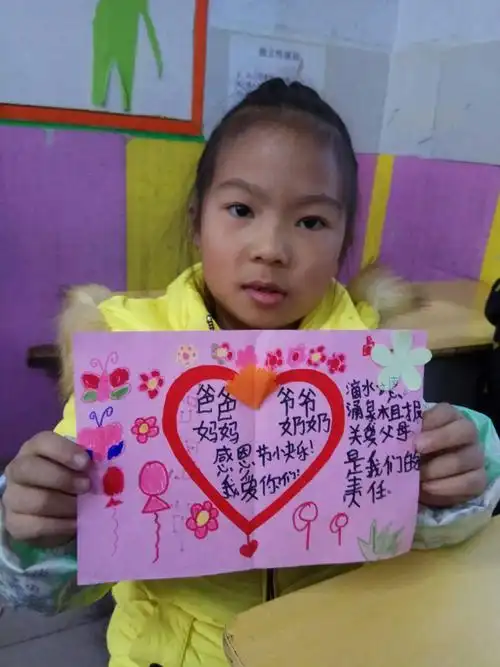 爸爸 爷爷
妈妈 奶奶
感恩节快乐!
我爱你们!
滴水
涌泉相报
关爱父母
是我们的
责任。